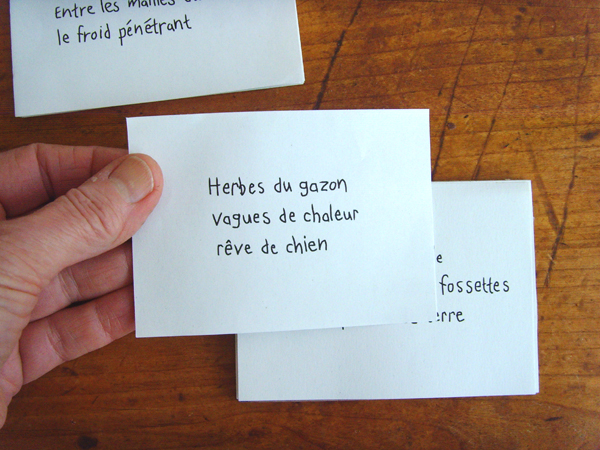 Entre les mailles
le froid pénétrant
Herbes du gazon
vagues de chaleur
rêve de chien
fossettes